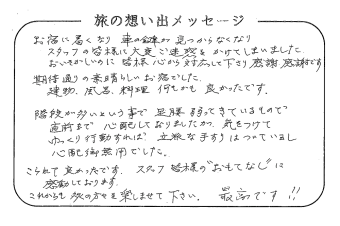 旅の想い出メッセージ
お宿に着くなり 車の鍵が見つからなくなり
スタッフの皆様に大変ご迷惑をかけてしまいました
おいそがしいのに 皆様 心から対応して下さり 感謝感謝です
期待通りの素晴らしいお宿でした。
建物、風呂、料理 何もかも 良かったです。
階段が多いという事で 足腰 弱ってきているもので
直前まで 心配しておりましたが、気をつけて
ゆっくり行動すれば 立派な手すりはついているし
心配御無用でした。
こられて良かったです。スタッフ皆様の“おもてなし”に
感動しております。
これからも 旅の方々を楽しませて下さい。 最高です!!